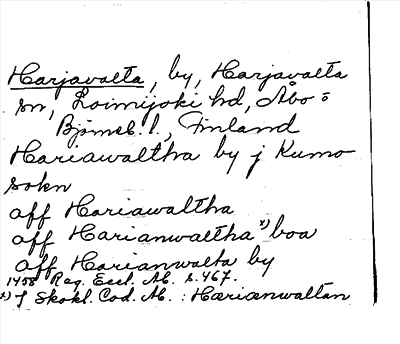 Harjavalta, by, Harjavalta
sn, Loimijoki hd, Åbo o
Björneb. l., Finland
Hariawaltha by j Kumo
sokn
aff Hariawaltha
aff Harianwaltha x) boa
aff Harianwalta by
1458 Reg. Eccl. Ab. s. 467.
x) I Skokl. Cod. Ab. : Harianwaltan